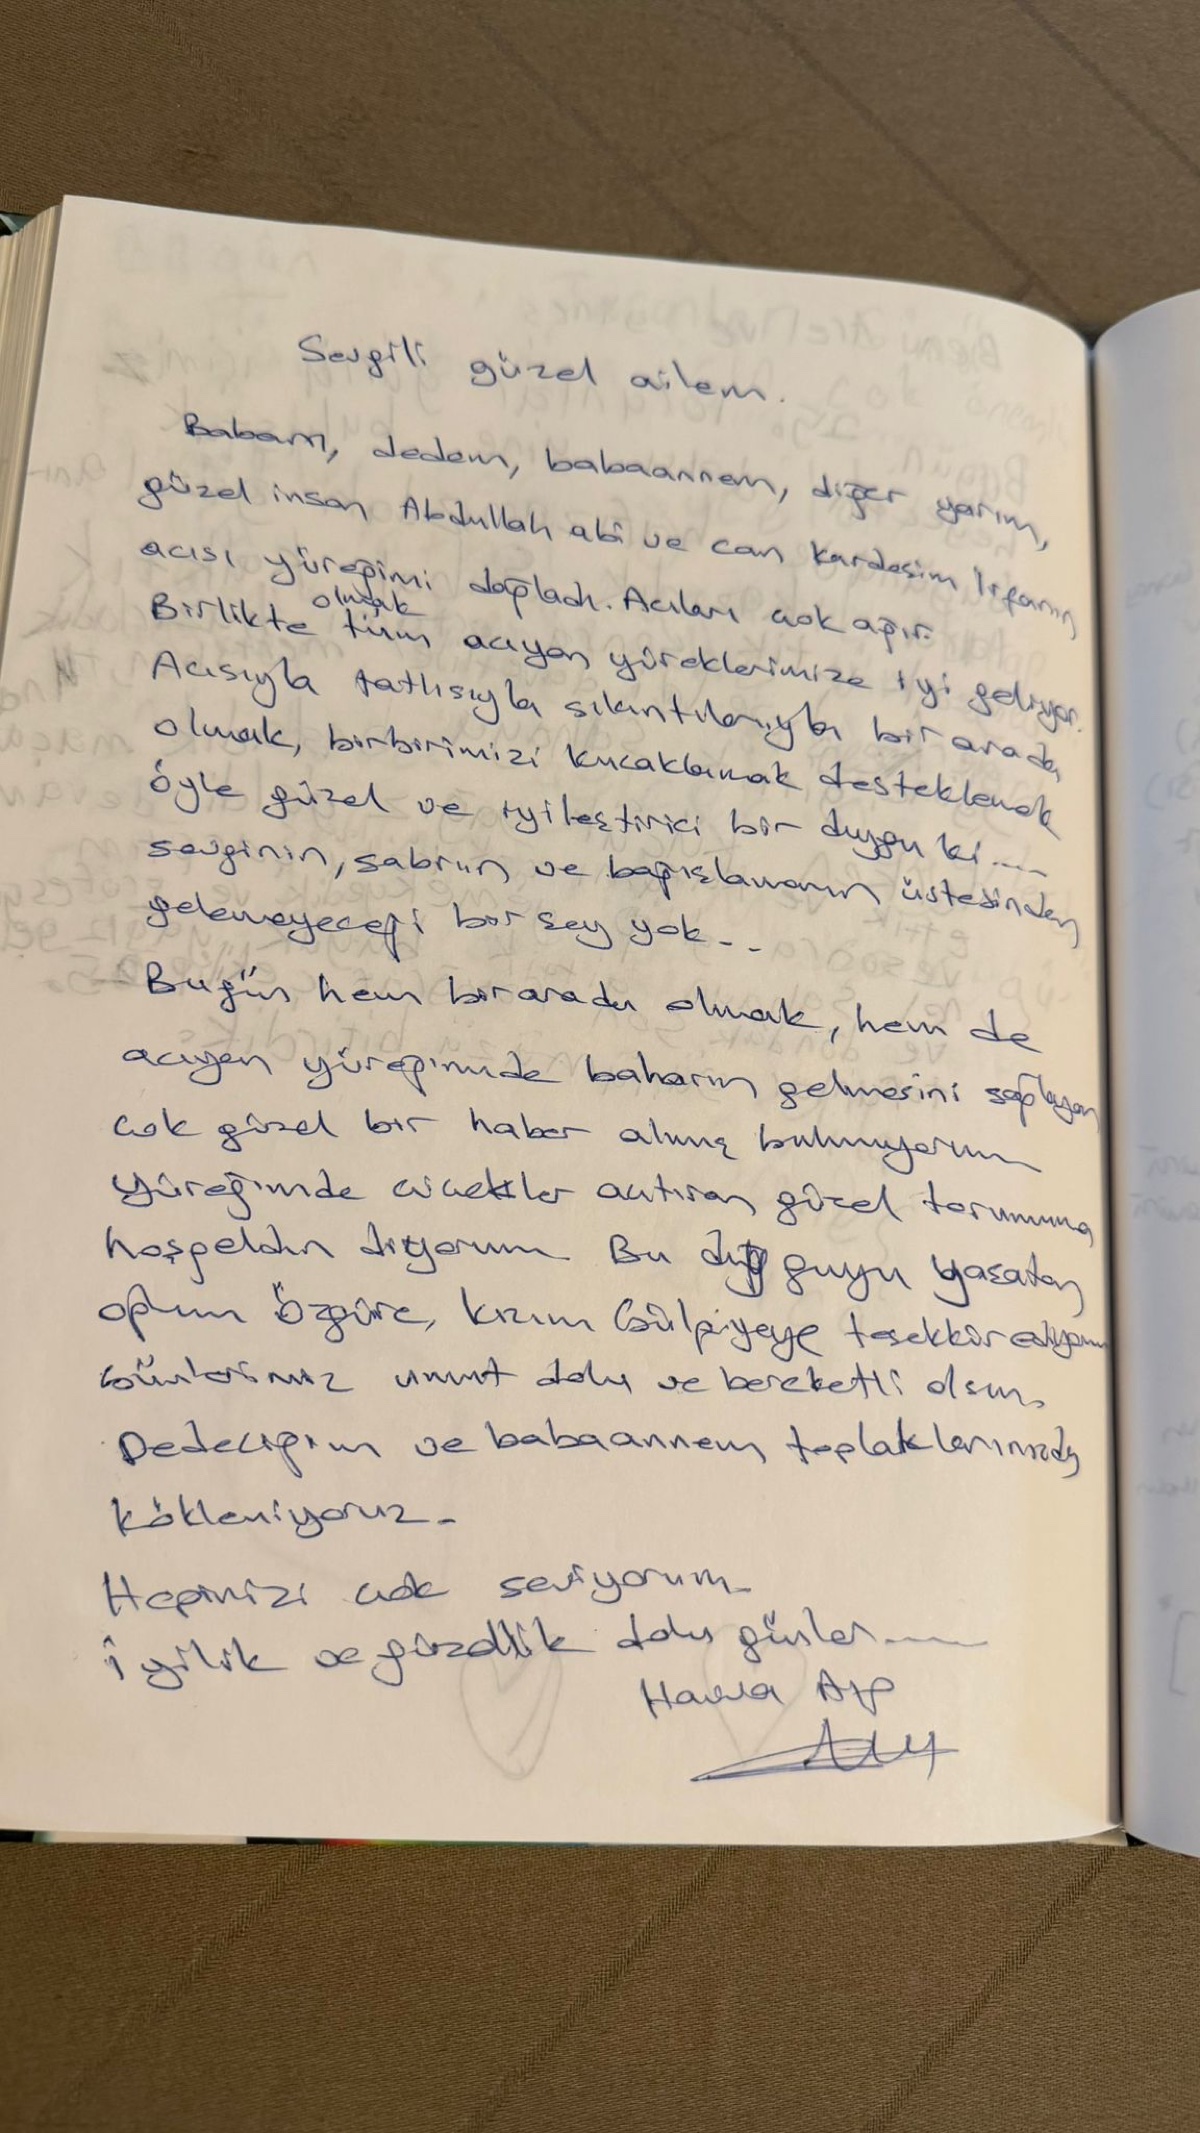 Sevgili güzel ailem.
Babam, dedem, babaannem, diğer yarım,
güzel insan Abdullah abi ve can kardeşim İrfanın
acısı yüreğimi dağladı. Acıları çok ağır.
Birlikte olmak tüm acıyan yüreklerimize iyi geliyor.
Acısıyla tatlısıyla sıkıntılarıyla bir arada
olmak, birbirimizi kucaklamak desteklemek
öyle güzel ve iyileştirici bir duygu ki....
sevginin, sabrın ve bağışlamanın üstesinden
gelemeyeceği bir şey yok...
Bugün hem bir arada olmak, hem de
acıyan yüreğimde baharın gelmesini sağlayan
çok güzel bir haber almış bulunuyorum
yüreğimde çiçekler açtıran güzel torunuma
hoşgeldin diyorum Bu duyguyu yaşatan
oğlum Özgüre, kızım Gülpiyeye teşekkür ediyorum
Günlerimiz umut dolu ve bereketli olsun.
Dedeciğim ve babaannem toplaklarımızda
kökleniyoruz.
Hepinizi çok seviyorum
iyilik ve güzellik dolu günler....
Havva Alp